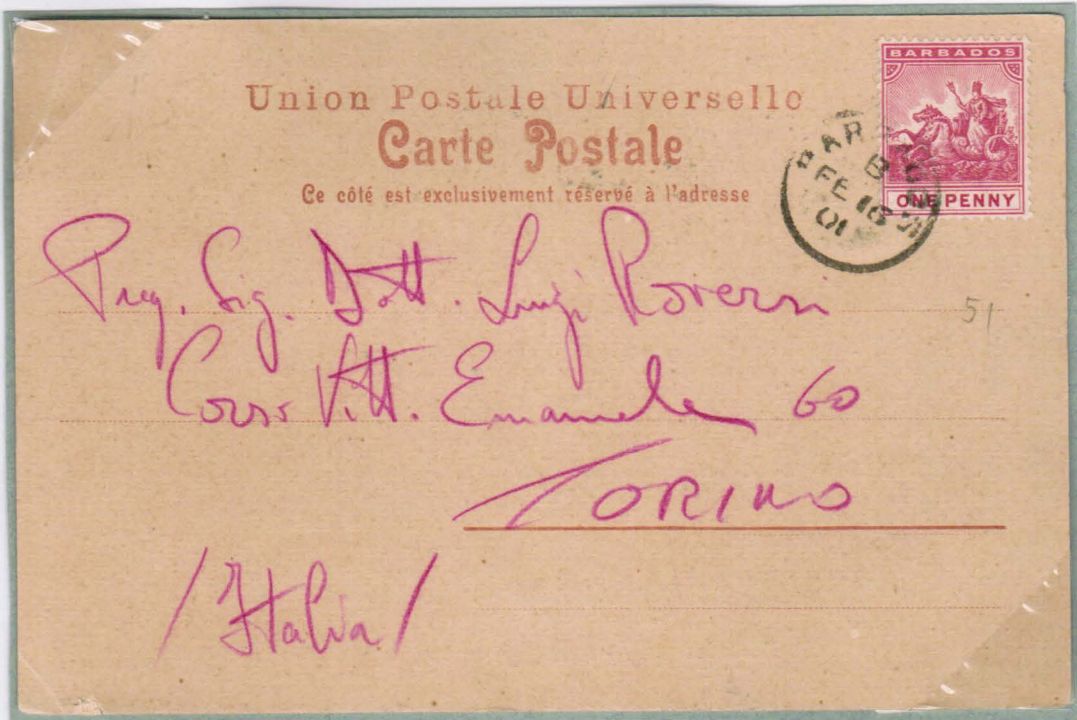 Union Postale Universelle
Carte Postale
Ce côté est exclusivement réservé à l'adresse
BARBADOS
ONE PENNY
BARBADOS
B
FE 16
01
Preg. Sig. Dott. Luigi Roversi
51
Corso Vitt. Emanuele 60
TORINO
/Italia/